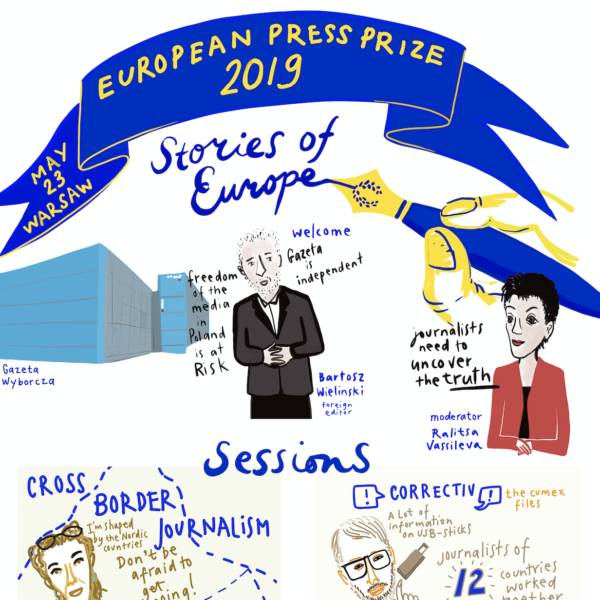 EUROPEAN PRESS PRIZE
2019
MAY
23
WARSAW
Stories of
Europe
welcome
Gazeta
is
independent
freedom
of the
media
in
Poland
is at
RISK
Gazeta
Wyborcza
Bartosz
Wielinski
foreign
editor
journalists
need to
uncover
the truth
moderator
Ralitsa
Vassileva
Sessions
CROSS
BORDER
JOURNALISM
I'm shaped
by the Nordic
countries
Don't be
afraid to
get
CORRECTIV
the cumex
files
A Lot of
information
on USB-sticks
journalists of
12 countries
worked
together